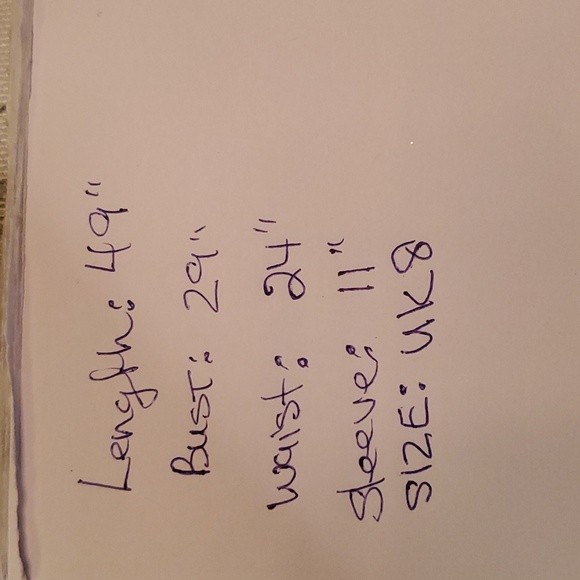 Length: 49"
Bust: 29"
Waist: 24"
Sleeve: 11"
SIZE: UK8